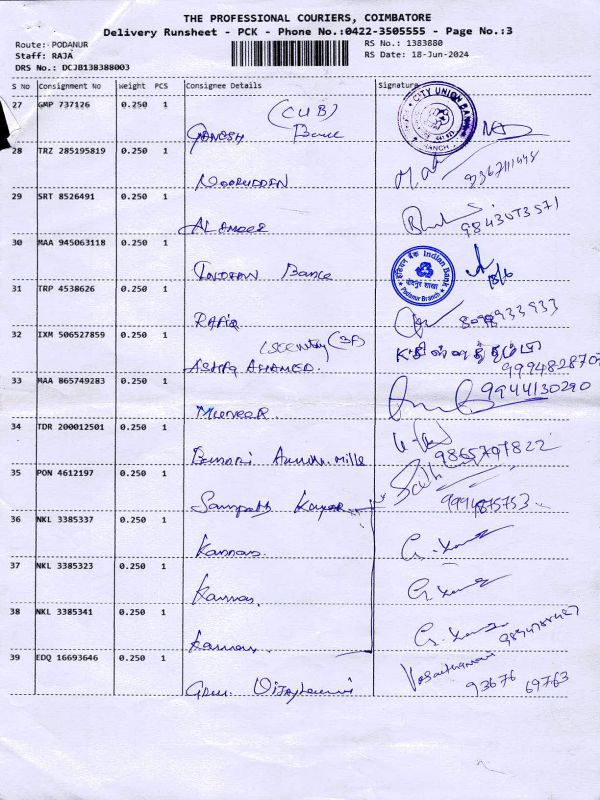 THE PROFESSIONAL COURIERS, COIMBATORE
Delivery Runsheet - PCK - Phone No.:0422-3505555 - Page No.:3
Route: PODANUR
RS No.: 1383880
Staff: RAJA
RS Date: 18-Jun-2024
DRS No.: DCJB138388003
S No Consignment No Weight PCS Consignee Details Signature
27 GMP 737126 0.250 1 (CUB)
GANESH Bank
CITY UNION BANK
28 TRZ 285195819 0.250 1
NOORUDDEN
29 SRT 8526491 0.250 1
AL AMEER
9843073571
30 MAA 945063118 0.250 1
INDIAN Bank
इंडियन बैंक Indian Bank
Podanur Branch
18/6
31 TRP 4538626 0.250 1
RAFIQ
32 IXM 506527859 0.250 1
ASHFAQ AHAMED.
33 MAA 865749283 0.250 1
9944130290
34 TDR 200012501 0.250 1
Mills
9865797822
35 PON 4612197 0.250 1
Sampath Kumar
9994875753
36 NKL 3385337 0.250 1
Kannan
37 NKL 3385323 0.250 1
Kannan
38 NKL 3385341 0.250 1
Kannan
39 EDQ 16693646 0.250 1
93676 69763